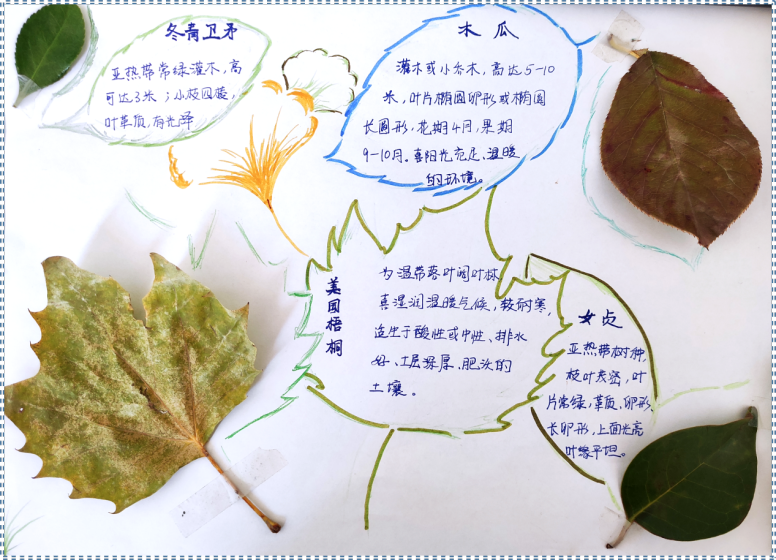 冬青卫矛
亚热带常绿灌木，高
可达3米；小枝四棱，
叶革质，有光泽
木瓜
灌木或小乔木，高达5-10
米，叶片椭圆卵形或椭圆
长圆形，花期4月，果期
9-10月。喜阳光充足、温暖
的环境。
美国梧桐
为温带落叶阔叶林
喜湿润温暖气候，较耐寒，
适生于酸性或中性、排水
好、土层深厚、肥沃的
土壤。
女贞
亚热带树种，
枝叶茂密，叶
片常绿，革质、卵形、
长卵形，上面光亮
叶缘平坦。